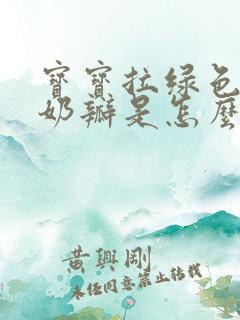 寶寶拉綠色
奶瓣是怎麼
黃興剛
未任同意禁止轉載